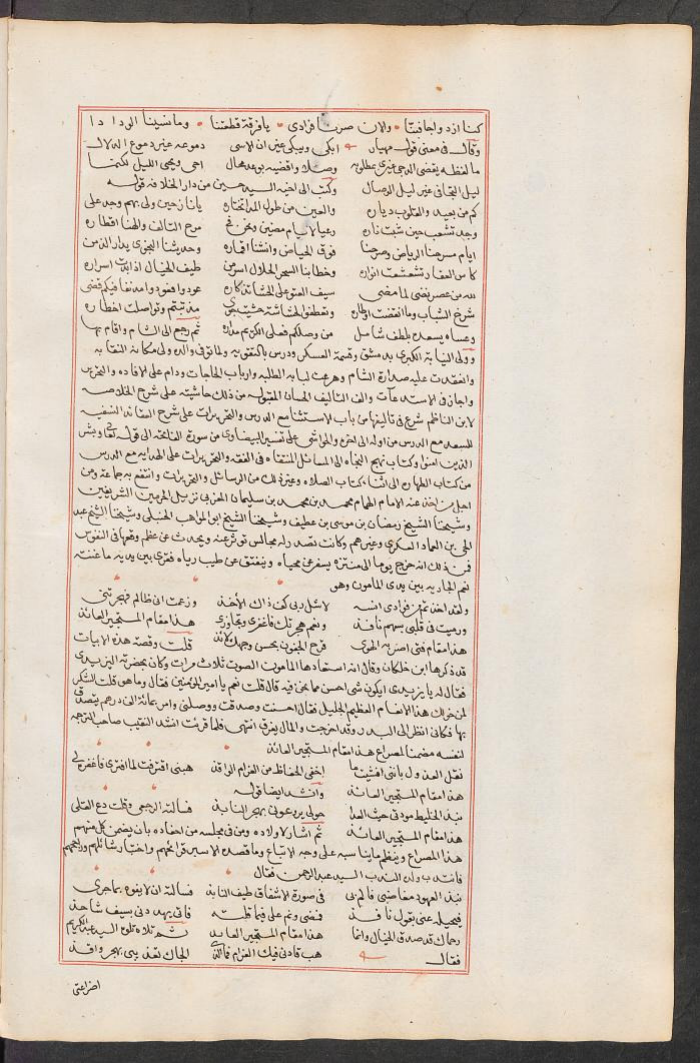 كنا ازدواجا فبتنا والان صرنا فرادى يا فرقة قطعتنا وما نسينا الودادا
وقال في معنى قول مهيار ابكي ويبكي غير ان الاسى دموعه غير دموع الدلال
ما لفظه يقضى الدجى غيرى عطلوبه وصلا واقضيه بوعد محال احى ويحيى الليل لكنما
ليل التجافى غير ليل الوصال وكتب الى اخيه السيد حسين من دار الخلافة قوله
كم من بعيد والقلوب دياره والعين من طول المدا تختاره يا نازحين ولى بهم وجد على
وجد تشعب حين شبت ناره رعيا لايام مضين ونحن في مرح التالف والهنا اقطاره
ايام مسرحنا الرياض وصرحنا فوق الحياض وانسنا اقماره وحديثنا النجوى يدار الدمن
كاس العقار تشعشعت انواره وخطابنا السحر الحلال اسر من طيف الخيال اذا بدت اسراره
لله من عصر تقضى لما مضى سيف العتو على الحشا تذكاره عودوا فعودوا مدنفا فيكم قضى
شرخ الشباب وما انقضت اوطاره وتعطفوا لحشاشة حشيت جوى مذ بنتم وتواصلت اخطاره
وعساه يسعده بلطف شامل من وصلكم فعلى الكريم مداره ثم رجع الى الشام واقام بها
وولى النيابة الكبرى بدمشق وقسمة العسكر ودرس بالتقويه ولما توفى والده ولى مكانه النقابه
وانعقدت عليه صدارة الشام وهرعت لبابه الطلبه وارباب الحاجات ودام على الافاده والتحرير
واجاز في الاستدعآت والف التاليف الحسان المقبوله من ذلك حاشيته على شرح الخلاصه
لابن الناظم شرع في تاليفها من باب الاستثنا مع الدرس والتحريرات على شرح العقائد النسفيه
للسعد مع الدرس من اوله الى اخره والحواشى على تفسير البيضاوى من سورة الفاتحة الى قوله تعالى وبشر
الذين امنوا وكتاب نهج النجاه الى المسائل المنتقاه في الفقه والتحريرات على الهدايه مع الدرس
من كتاب الطهاره الى اثناء كتاب الصلاه وغير ذلك من الرسائل والتحريرات وانتفع به جماعة ومن
اجل من اخذ عنه الامام الهمام محمد بن محمد بن سليمان المغربى نزيل الحرمين الشريفين
وشيخنا الشيخ رمضان بن موسى بن عطيف وشيخنا الشيخ ابو المواهب الحنبلى وشيخنا الشيخ عبد
الحى بن العماد العكرى وغيرهم وكانت تصدر له مجالس تؤثر عنه ويحدث عن عظم وقعها في النفوس
فمن ذلك انه خرج يوما الى منتزه يسفر عن محياه وينفتق عن طيب رياه فقرئ بين يديه ما غنته
نعم الجاريه بين يدى المامون وهو
ولقد اخذتم من فؤادى انسه لا شل ربى كف ذاك الاخذ وزعمت انى ظالم فهجرتنى
ورميت فى قلبى بسهم نافذ ونعم هجرتك فاغفرى وتجاوزى هذا مقام المستجير العائذ
هذا مقام فتى اضر به الهوى قرح الجفون بحسن وجهك لائذ قلت وقصة هذه الابيات
قد ذكرها ابن خلكان وقال انه استعادها المامون الصوت ثلاث مرات وكان بحضرته اليزيدى
فقال له يا يزيدى ايكون شى احسن مما نحن فيه قال قلت نعم يا امير المؤمنين فقال وما هو قلت الشكر
لمن خولك هذا الانعام العظيم الجليل فقال احسنت وصدقت ووصلنى وامر بمائة الف درهم يتصدق
بها فكانى انظر الى البدر وقد اخرجت والمال يفرق انتهى فلما قرئت انشد النقيب صاحب الترجمه
لنفسه مضمنا لمصراع هذا مقام المستجير العائذ
نقل العذول بانى افشيت ما اخفى الحفاظ من الغرام الواقذ هبنى اقترفت لما افترى فاغفر لى
هذا مقام المستجير العائذ وانشد ايضا قوله
نبذ الخليط مودتى حيث العدا حولى يردعونى بهجر النابذ فسالته الرجعى وقلت دع القلى
هذا مقام المستجير العائذ ثم اشار لاولاده ومن في مجلسه من احفاده بان يضمن كل منهم
هذا المصراع وينظم ما يناسبه على وجه الاتباع وما قصده الا سبر قرائحهم واختبار شائلهم ورائحهم
فانتدب ولده الندب السيد عبد الرحمن فقال
نبذ العهود مغاضبى فالم بى في صورة الاشفاق طيف النابذ فسالته ان لا يفوه بما جرى
فيحيله عنى بقول نافذ فمضى ونم على فيما قلته فاتى يهددنى بسيف شاحذ
رحماك قد صدق الخيال وانما هذا مقام المستجير العايذ ثم تلاه تلوه السيد عبد الكريم
فقال هب قادنى فيك الغرام فالذى الجاك تغذيبى بهجر واقذ
اضراعتى